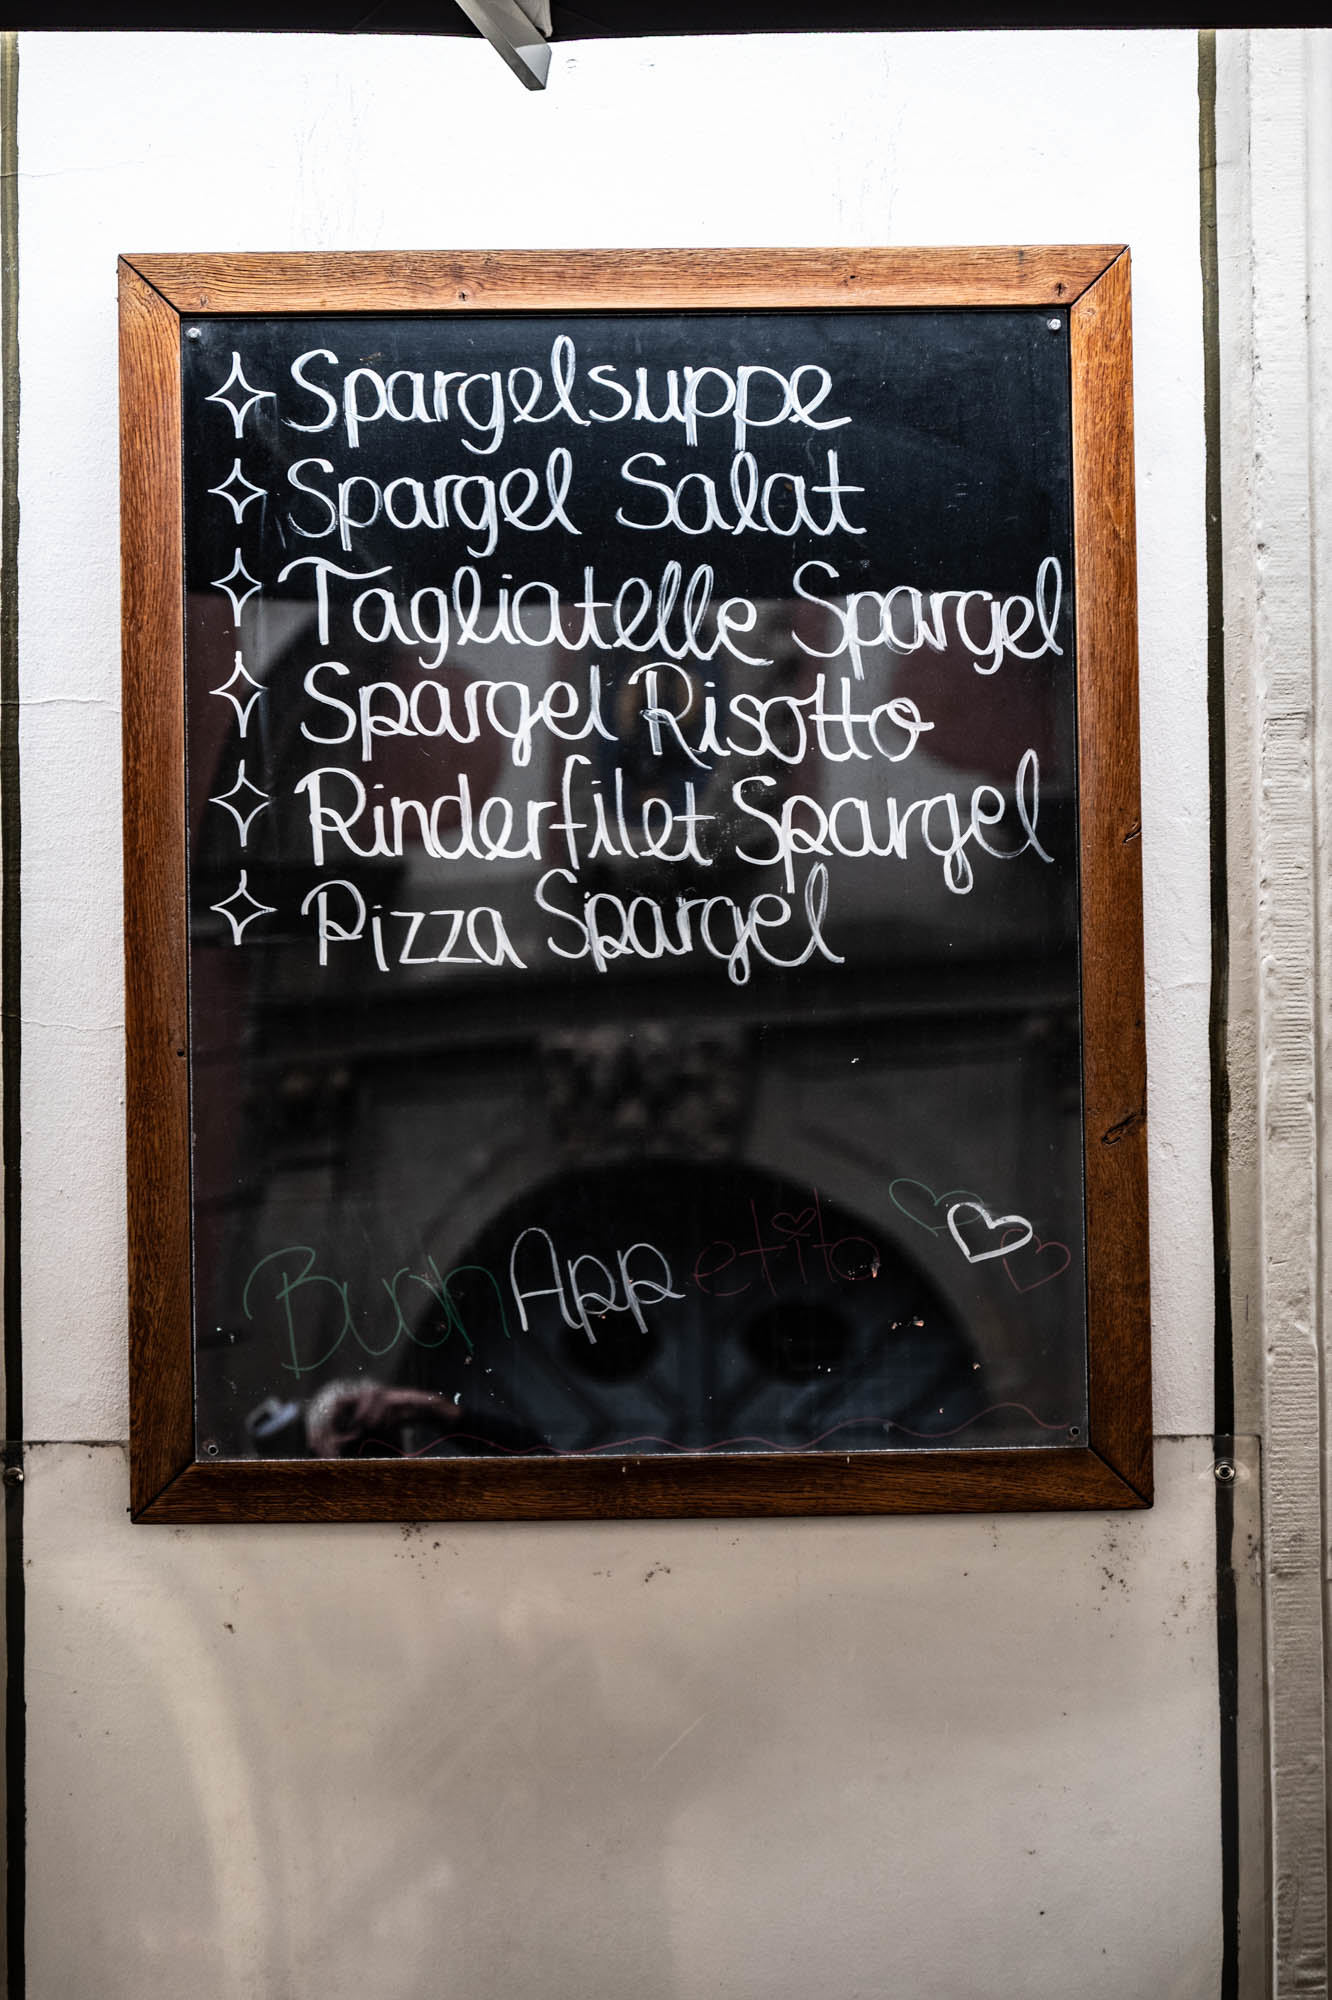 Spargelsuppe
Spargel Salat
Tagliatelle Spargel
Spargel Risotto
Rinderfilet Spargel
Pizza Spargel
Buon Appetito